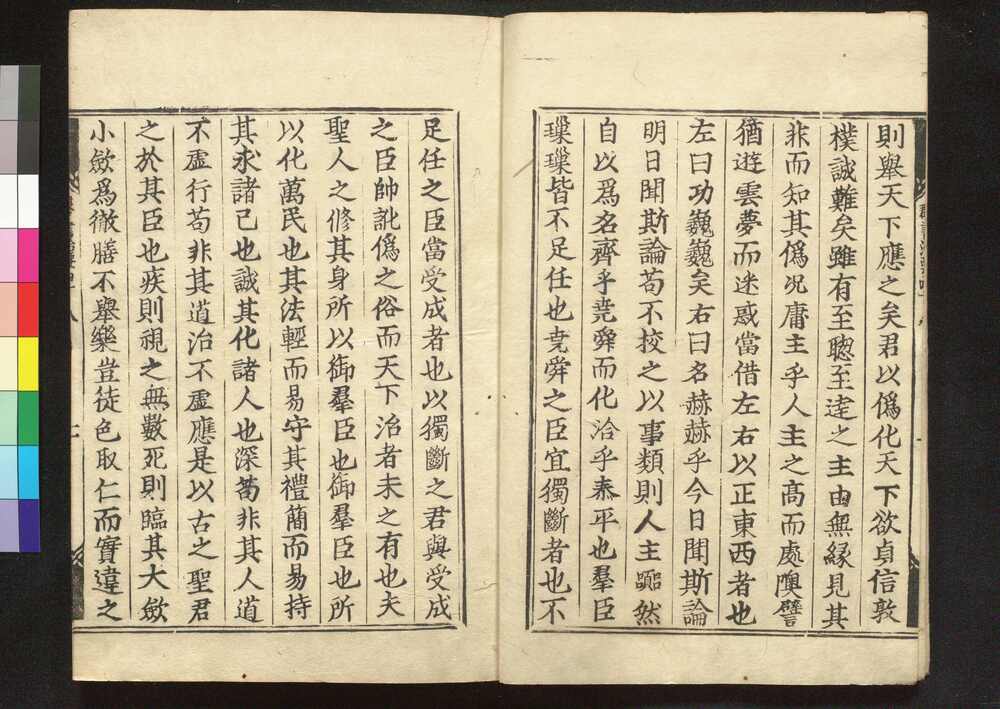 則舉天下應之矣君以僞化天下欲貞信敦
樸誠難矣雖有至聰至達之主由無緣見其
非而知其僞况庸主乎人主之高而處隩譬
猶遊雲夢而迷惑當借左右以正東西者也
左曰功巍巍矣右曰名赫赫乎今日聞斯論
明日聞斯論苟不挍之以事類則人主嚻然
自以爲名齊乎堯舜而化洽乎泰平也羣臣
璅璅皆不足任也堯舜之臣宜獨斷者也不
足任之臣當受成者也以獨斷之君與受成
之臣帥訛僞之俗而天下治者未之有也夫
聖人之修其身所以御羣臣也御羣臣也所
以化萬民也其法輕而易守其禮簡而易持
其求諸己也誠其化諸人也深苟非其人道
不虛行苟非其道治不虛應是以古之聖君
之於其臣也疾則視之無數死則臨其大斂
小斂爲徹膳不舉樂豈徒色取仁而實違之